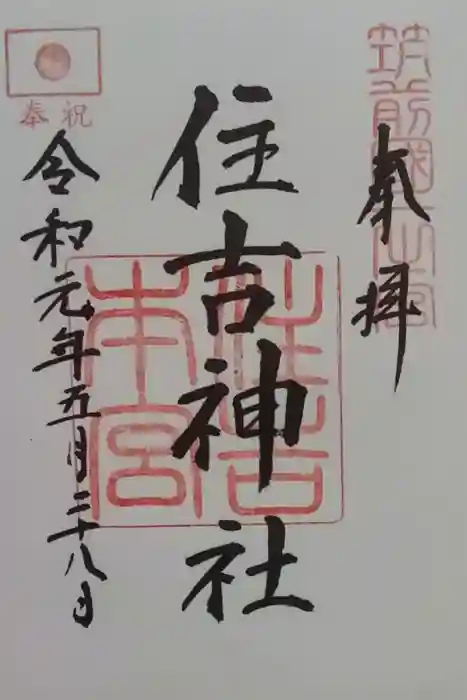 筑前國一之宮
奉拝
住吉神社
住吉本宮
奉祝
令和元年五月二十八日